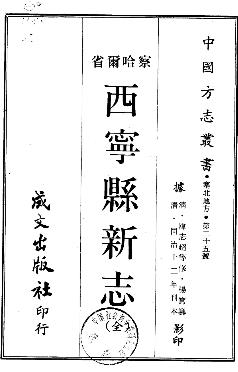 中國方志叢書・塞北地方・第二十五號
據清・韓志超等修・楊篤纂
清・同治十二年刊本影印
察哈爾省
西寧縣新志
(全)
成文出版社印行